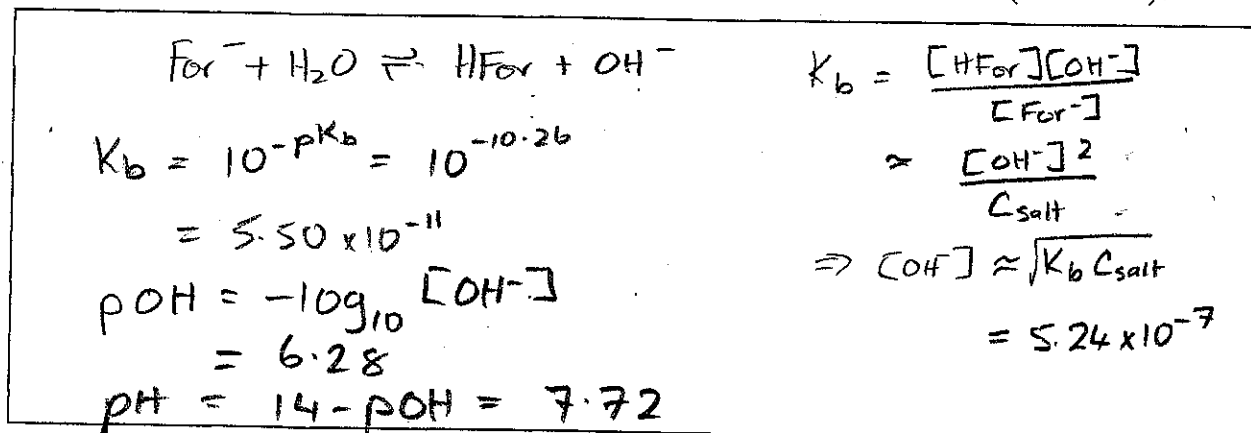 For⁻ + H₂O ⇌ HFor + OH⁻
K_b = 10^{-pK_b} = 10^{-10.26}
= 5.50 x 10⁻¹¹
pOH = -log₁₀ [OH⁻]
= 6.28
pH = 14 - pOH = 7.72
K_b = [HFor][OH⁻] / [For⁻]
≈ [OH⁻]² / C_salt
⇒ [OH⁻] ≈ √(K_b C_salt)
= 5.24 x 10⁻⁷